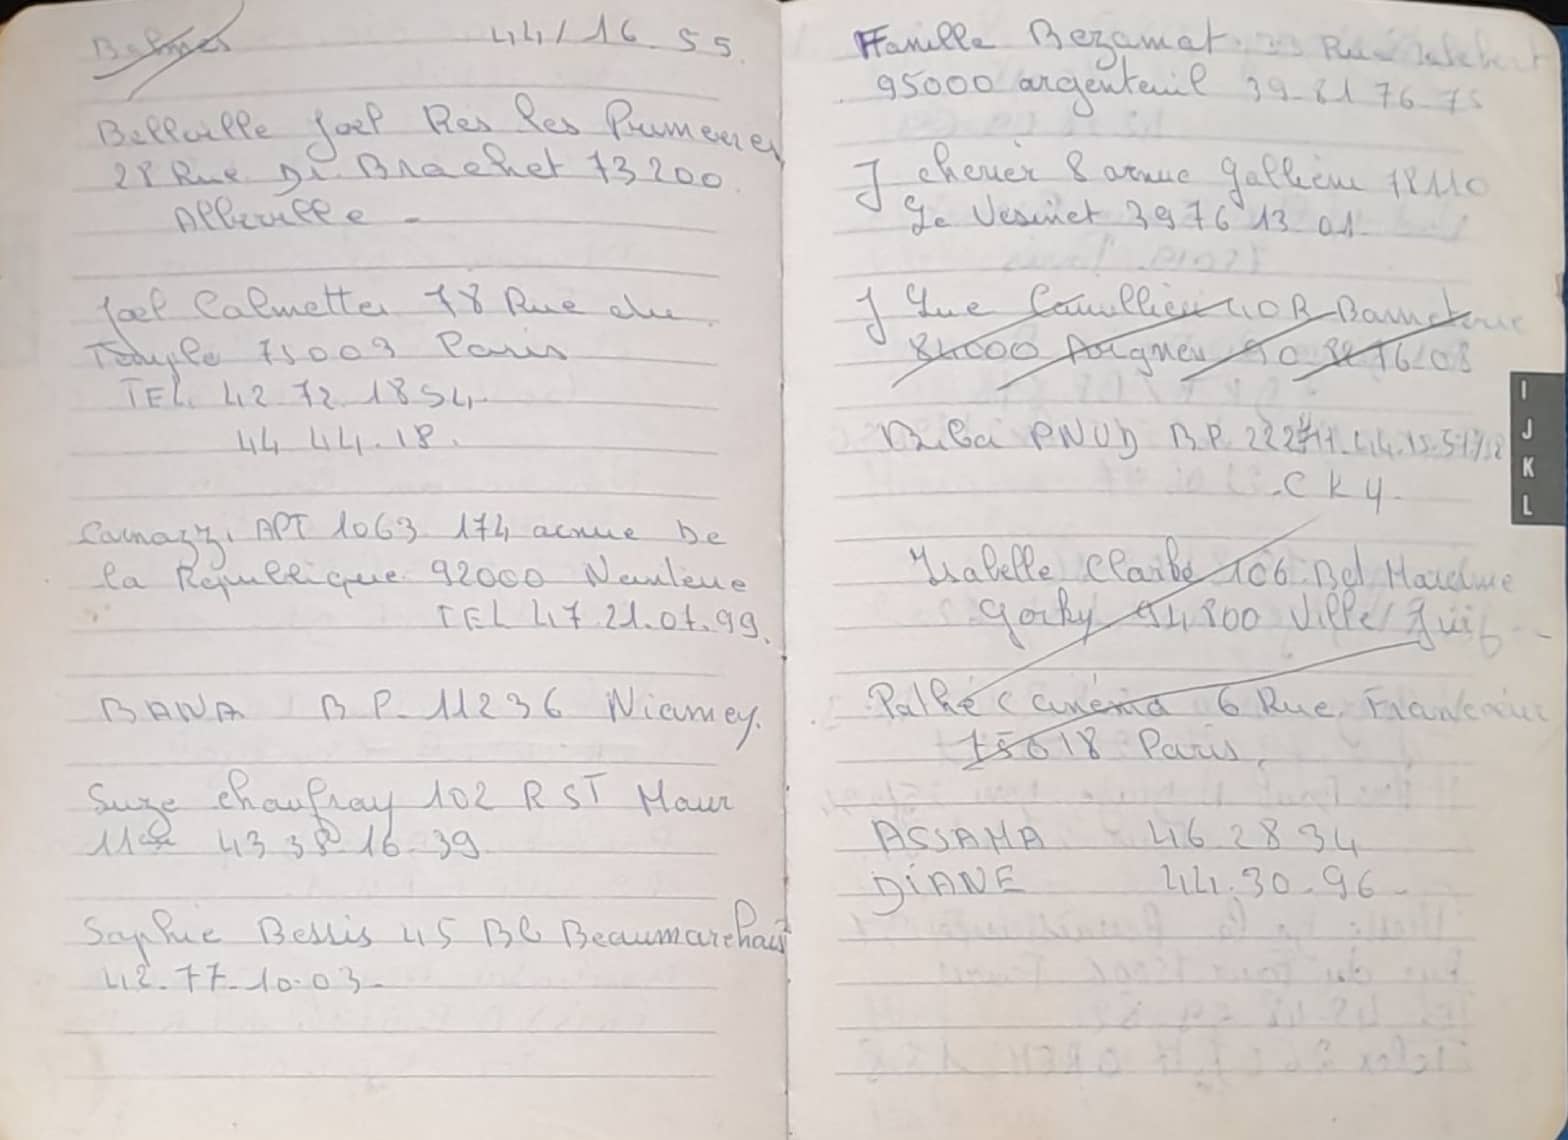 44/16.55.
Belleville Joel Res les Prumeures
28 Rue Dr. Brachet 73200
Albeville -
Joel Calmettes 78 Rue du
Temple 75003 Paris
TEL. 42 72 18 54.
44 44.18.
Camazzi APT 1063 174 avenue De
la République 92000 Nanterre
TEL 47.21.07.99.
BANA B P. 11236 Niamey.
Suze Chaufray 102 R ST Maur
11 43 38 16.39
Sophie Bessis 45 Bl Beaumarchais
42.77.10.03.
Famille Bezamat Rue
95000 argenteuil 39.81 76.75
J chenier 8 avenue Gallieni 78110
Le Vesinet 39 76 13 01
J Luc Cavillieu 40 R
84000 Avignon 90 82 76 08
PNUD B.P.
C K Y.
Isabelle Claibé 106 Bd Maxime
Gorky 94,800 Ville Juif -
Pathé Cinéma 6 Rue Francoeur
75018 Paris.
ASSAMA 46 28 34
DIANE 44.30.96-
I
J
K
L